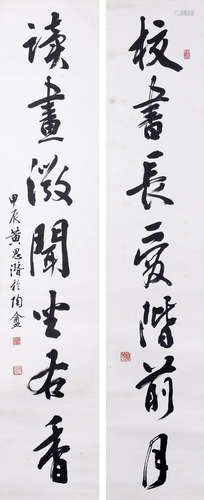 校書長愛階前月
讀畫微聞坐右香
甲辰黃思潛於陶盦